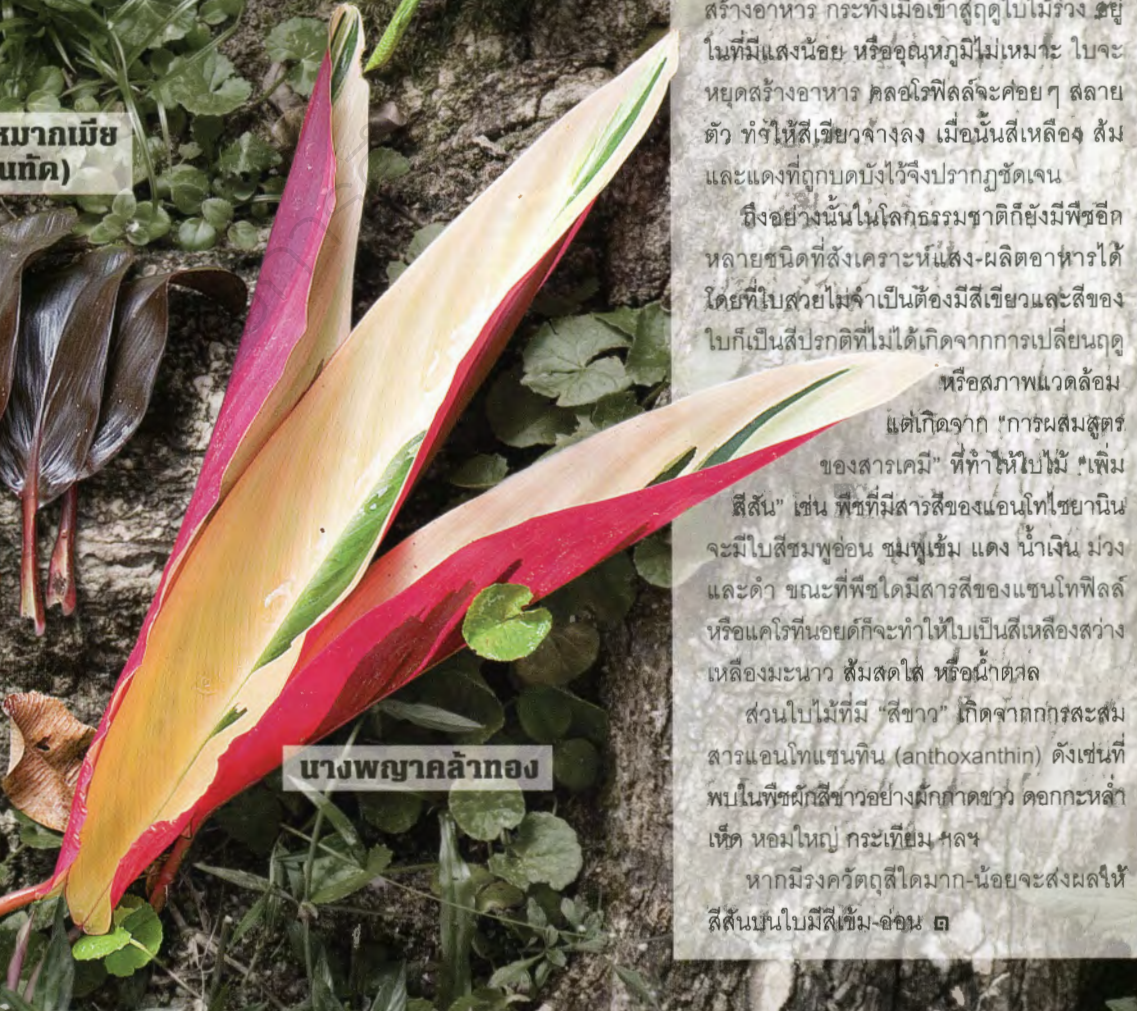 หมากเมีย
นทัด)
นางพญาคล้าทอง
สร้างอาหาร กระทั่งเมื่อเข้าสู่ฤดูใบไม้ร่วง อยู่
ในที่มีแสงน้อย หรืออุณหภูมิไม่เหมาะ ใบจะ
หยุดสร้างอาหาร คลอโรฟิลล์จะค่อย ๆ สลาย
ตัว ทำให้สีเขียวจางลง เมื่อนั้นสีเหลือง ส้ม
และแดงที่ถูกบดบังไว้จึงปรากฏชัดเจน
ถึงอย่างนั้นในโลกธรรมชาติก็ยังมีพืชอีก
หลายชนิดที่สังเคราะห์แสง-ผลิตอาหารได้
โดยที่ใบสวยไม่จำเป็นต้องมีสีเขียวและสีของ
ใบก็เป็นสีปรกติที่ไม่ได้เกิดจากการเปลี่ยนฤดู
หรือสภาพแวดล้อม
แต่เกิดจาก “การผสมสูตร
ของสารเคมี” ที่ทำให้ใบไม้ “เพิ่ม
สีสัน” เช่น พืชที่มีสารสีของแอนโทไซยานิน
จะมีใบสีชมพูอ่อน ชมพูเข้ม แดง น้ำเงิน ม่วง
และดำ ขณะที่พืชใดมีสารสีของแซนโทฟิลล์
หรือแคโรทีนอยด์ก็จะทำให้ใบเป็นสีเหลืองสว่าง
เหลืองมะนาว ส้มสดใส หรือน้ำตาล
ส่วนใบไม้ที่มี “สีขาว” เกิดจากการสะสม
สารแอนโทแซนทิน (anthoxanthin) ดังเช่นที่
พบในพืชผักสีขาวอย่างผักกาดขาว ดอกกะหล่ำ
เห็ด หอมใหญ่ กระเทียม ฯลฯ
หากมีรงควัตถุสีใดมาก-น้อยจะส่งผลให้
สีสันบนใบมีสีเข้ม-อ่อน